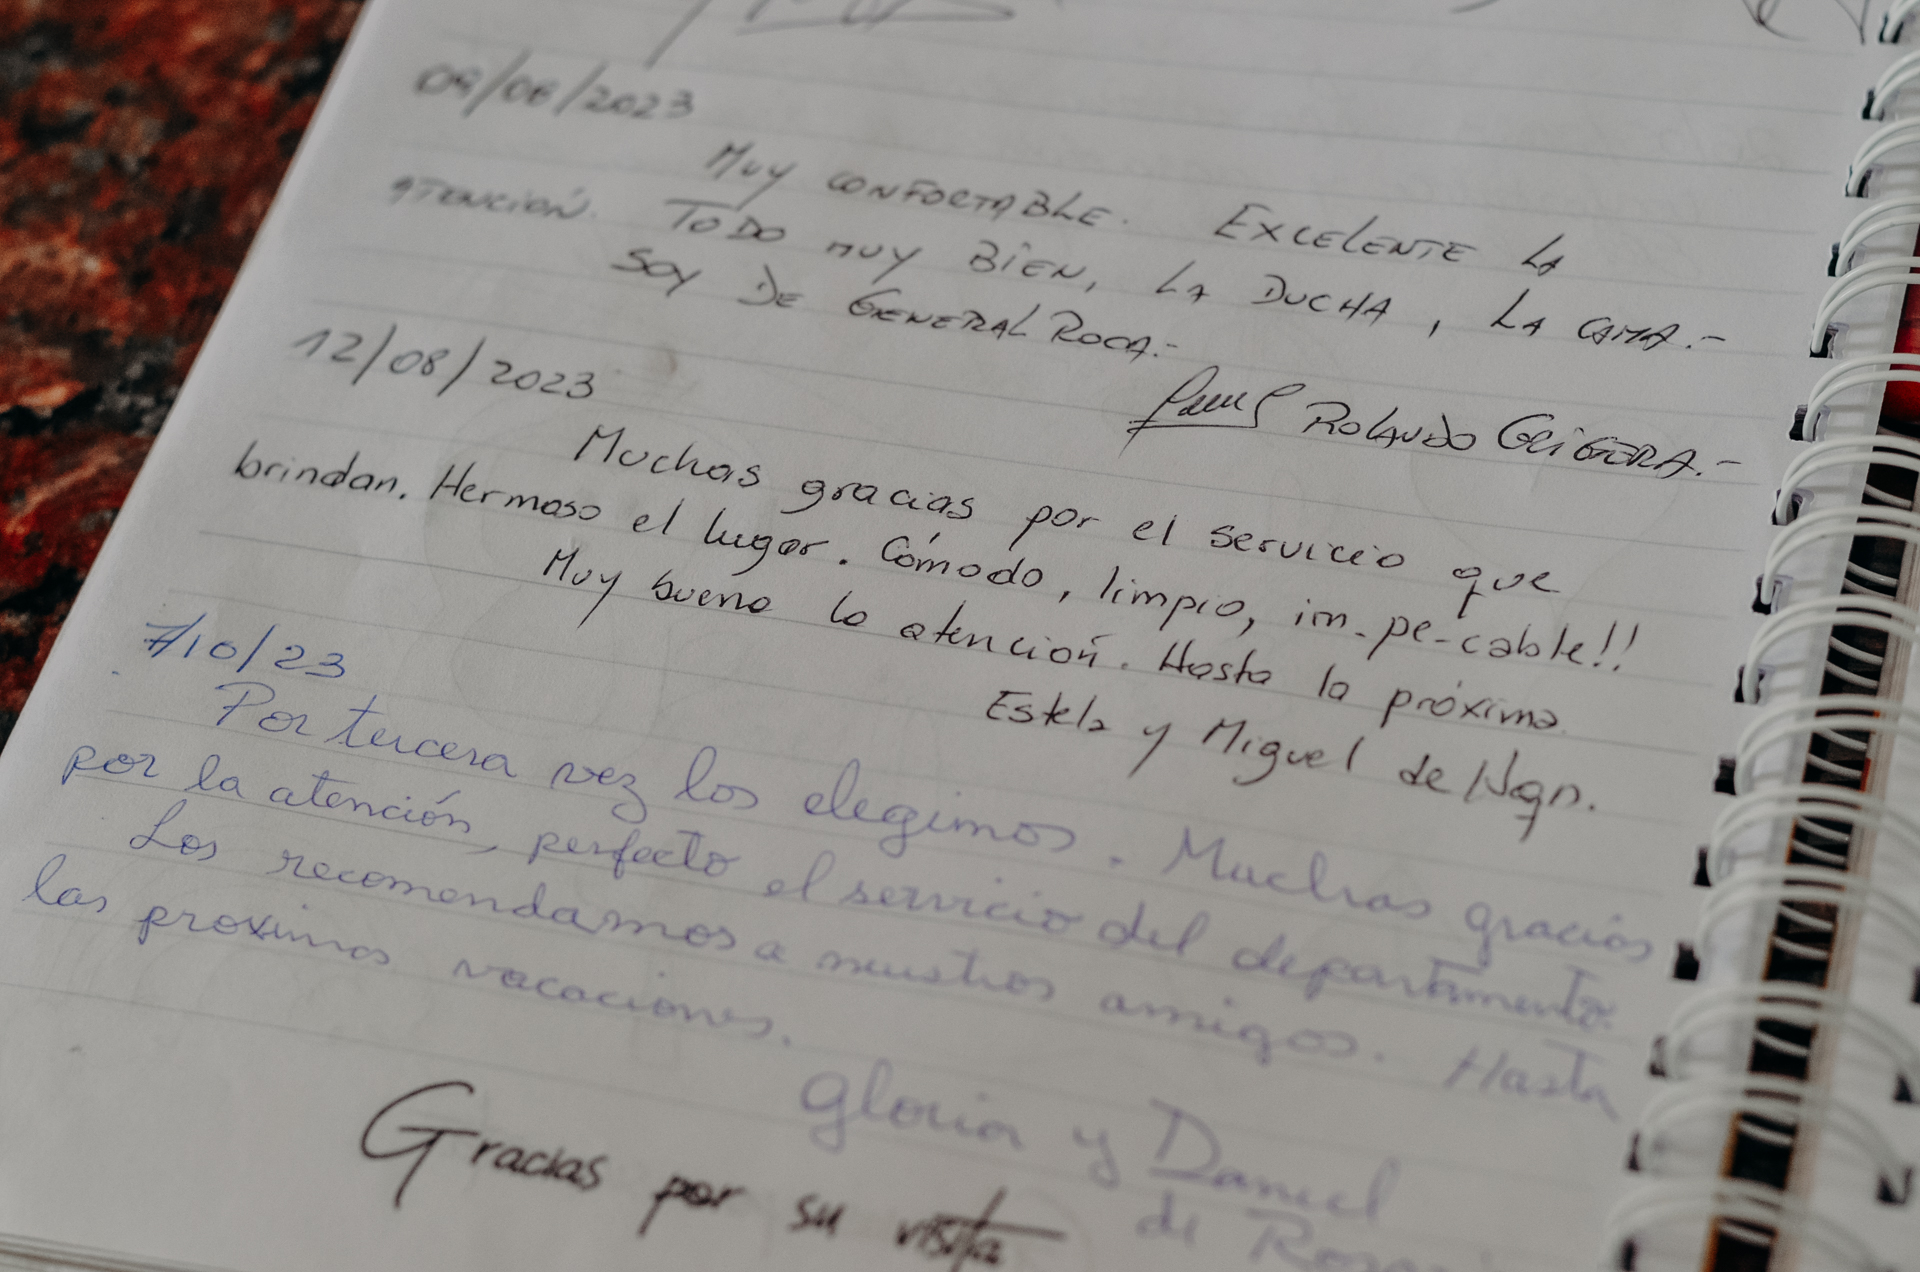 09/06/2023
MUY CONFORTABLE. EXCELENTE LA
ATENCIÓN. TODO MUY BIEN, LA DUCHA, LA CAMA.-
SOY DE GENERAL ROCA.-
ROLANDO
12/08/2023
Muchas gracias por el servicio que
brindan. Hermoso el lugar. Cómodo, limpio, im-pe-cable!!
Muy buena la atención. Hasta la próxima.
Estela y Miguel de Nqn.
7/10/23
Por tercera vez los elegimos. Muchas gracias
por la atención, perfecto el servicio del departamento.
Los recomendamos a nuestros amigos. Hasta
las proximas vacaciones.
Gloria y Daniel
de
Gracias por su visita